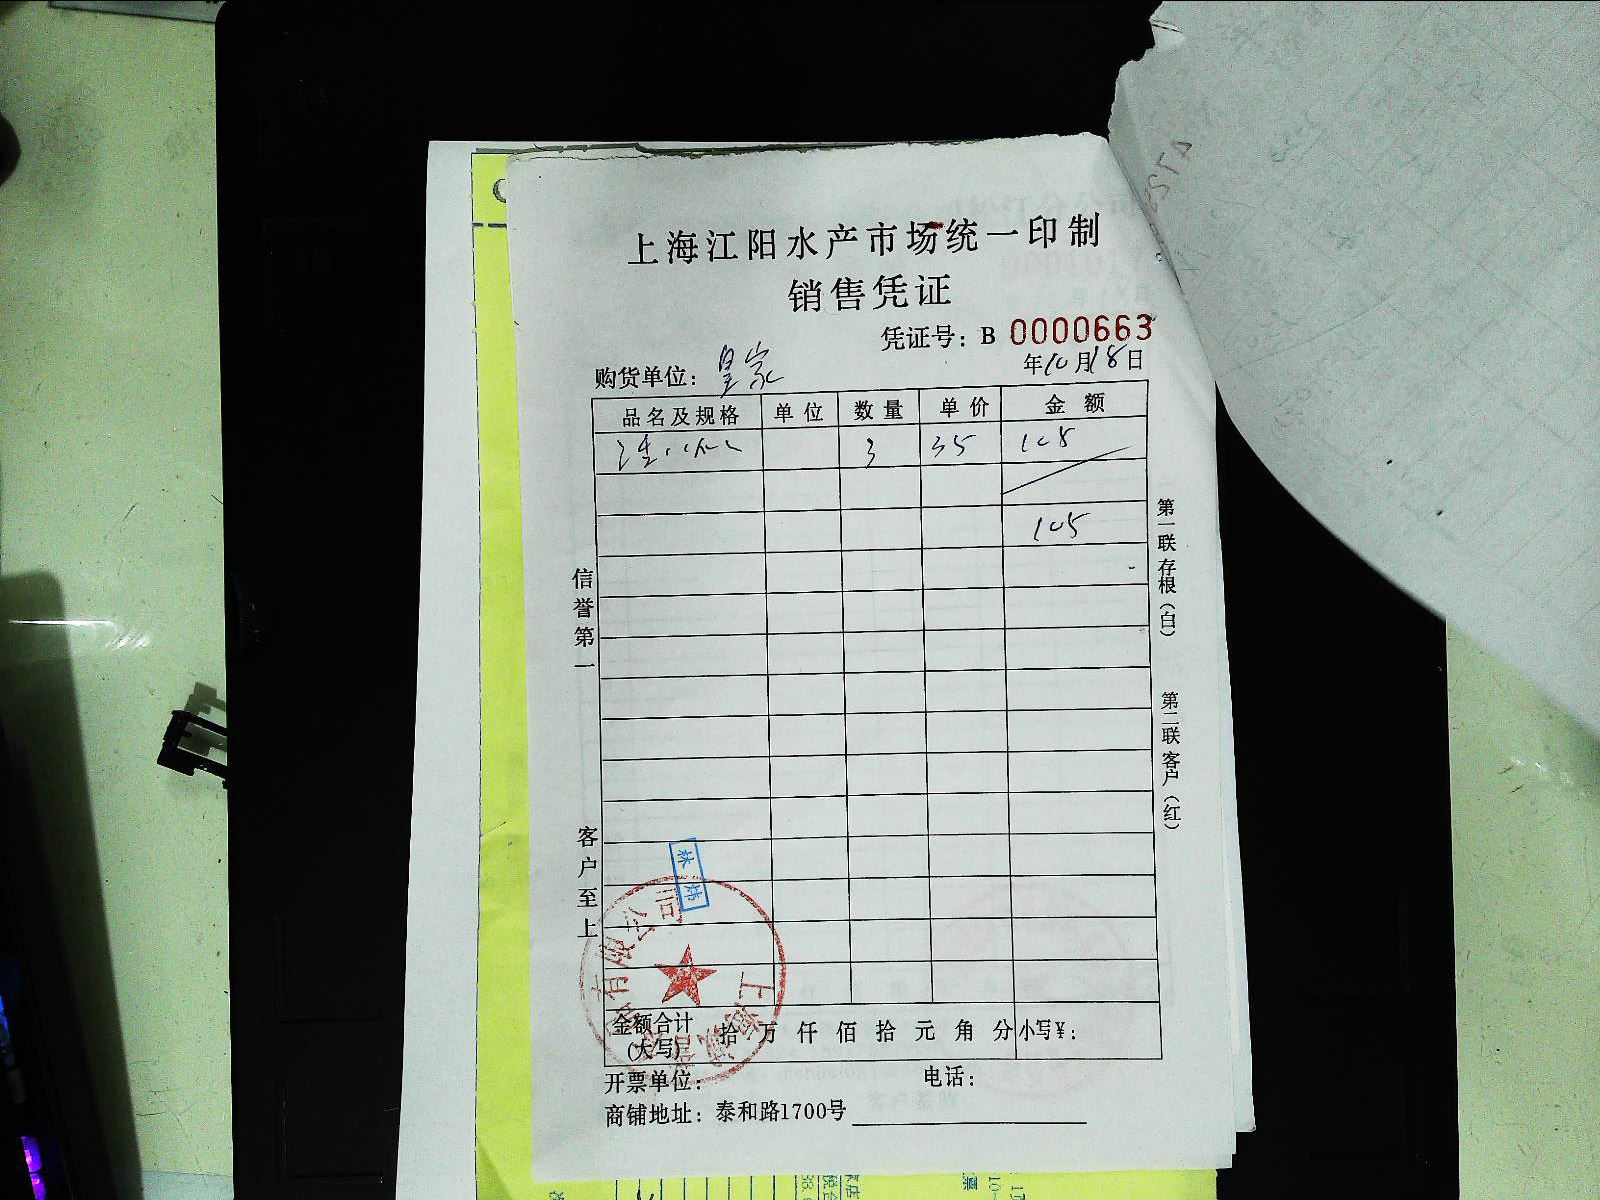 上海江阳水产市场统一印制
销售凭证
凭证号：B 0000663
购货单位：皇家 年10月18日
品名及规格 单位 数量 单价 金额
3 35 105
105
信誉第一
客户至上
第一联存根（白）
第二联客户（红）
林炜
有限公司
上海
金额合计（大写） 拾 万 仟 佰 拾 元 角 分 小写¥：
开票单位： 电话：
商铺地址：泰和路1700号